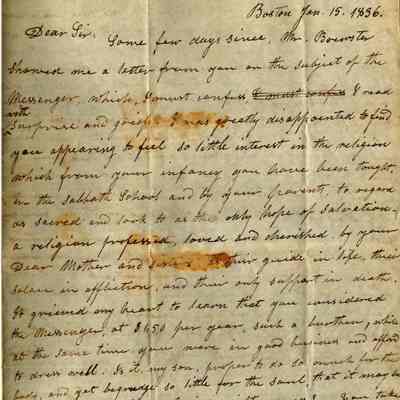 Boston Jan. 15. 1836.
Dear Sir. Some few days since, Mr. Brewster
showed me a letter from you on the subject of the
Messenger, which, I must confess I must confess I read
with
surprise and grief. I was greatly disappointed to find
you appearing to feel so little interest in the religion
which from your infancy you have been taught,
in the Sabbath School and by your parents, to regard
as sacred and look to as the only hope of Salvation—
a religion professed, loved and cherished by your
Dear Mother and guide in life, their
solace in affliction, and their only support in death.
It grieved my heart to learn that you considered
the Messenger, at $1.50 per year, such a burthen, while
at the same time your were in good business and afford
to dress well. Is it, my son, proper to do so much for the
body, and yet begrudge so little for the soul that it may be
You take